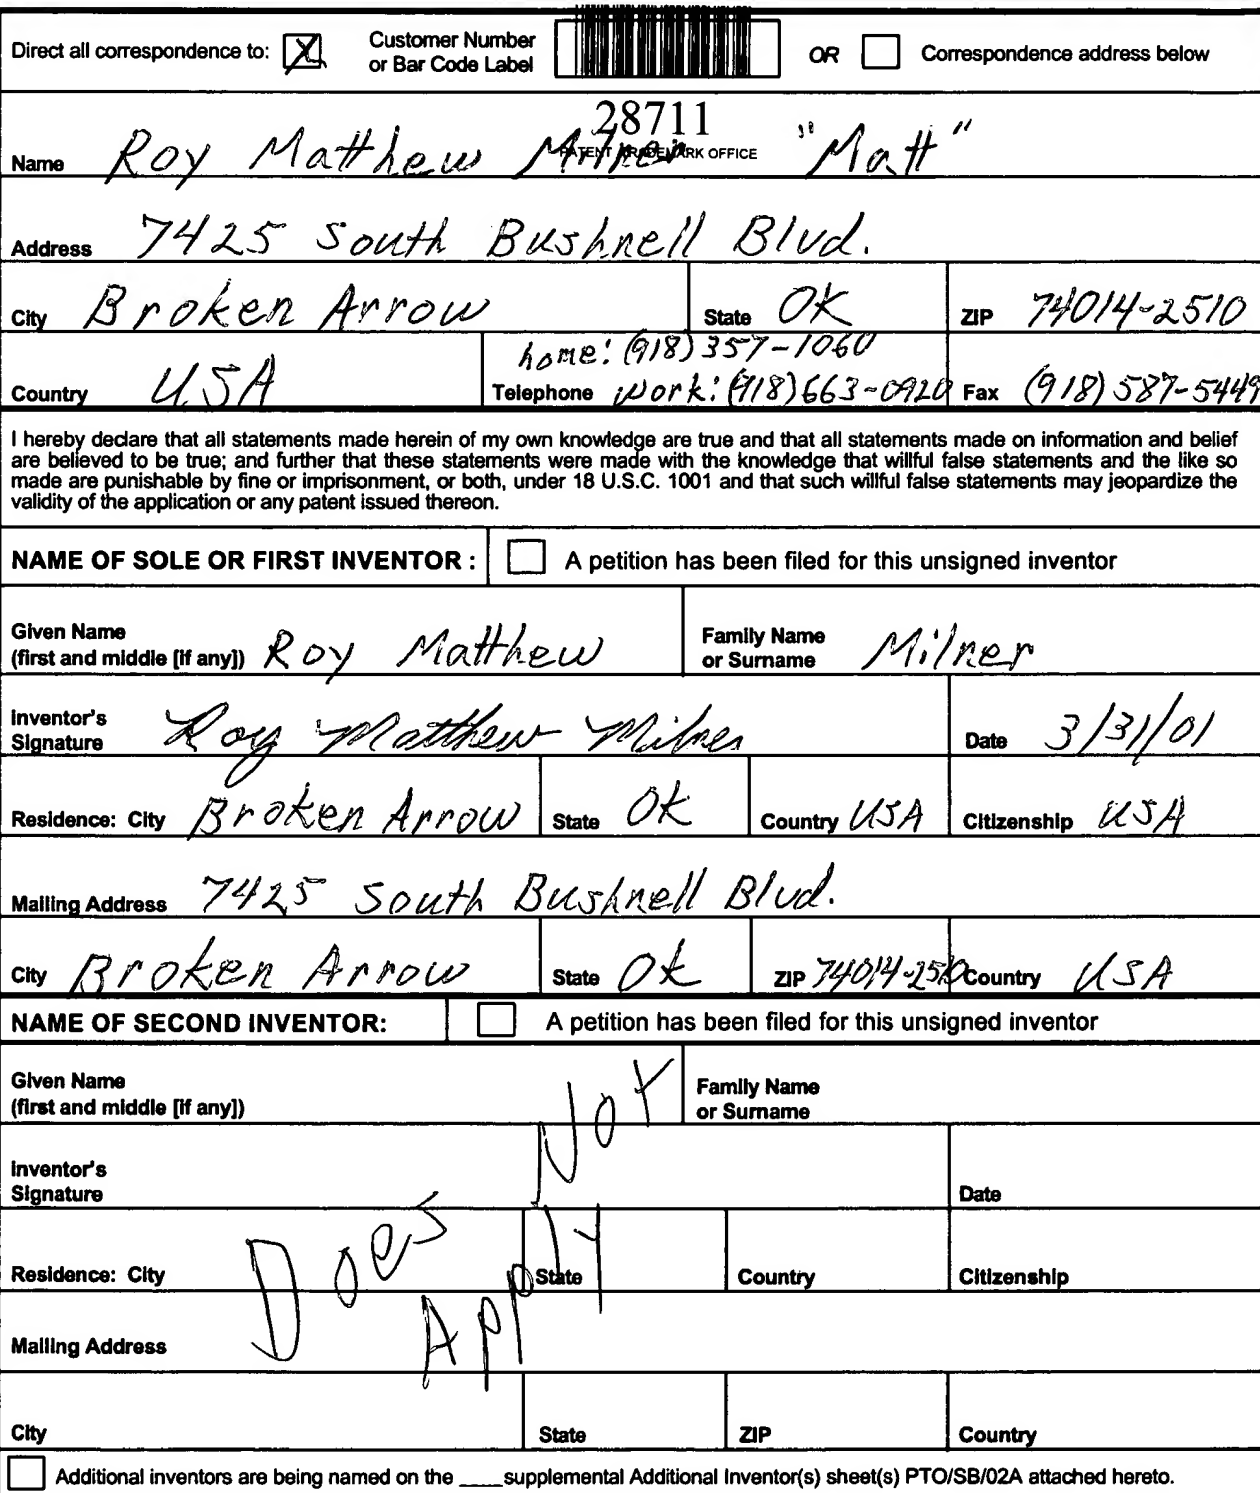 Direct all correspondence to: X Customer Number or Bar Code Label OR Correspondence address below
28711
PATENT TRADEMARK OFFICE
Name Roy Matthew Milner "Matt"
Address 7425 South Bushnell Blvd.
City Broken Arrow State OK ZIP 74014-2510
home: (918) 357-1060
Country USA Telephone work: (918) 663-0920 Fax (918) 587-5449
I hereby declare that all statements made herein of my own knowledge are true and that all statements made on information and belief
are believed to be true; and further that these statements were made with the knowledge that willful false statements and the like so
made are punishable by fine or imprisonment, or both, under 18 U.S.C. 1001 and that such willful false statements may jeopardize the
validity of the application or any patent issued thereon.
NAME OF SOLE OR FIRST INVENTOR : A petition has been filed for this unsigned inventor
Given Name
(first and middle [if any]) Roy Matthew Family Name or Surname Milner
Inventor's
Signature Roy Matthew Milner Date 3/31/01
Residence: City Broken Arrow State OK Country USA Citizenship USA
Mailing Address 7425 South Bushnell Blvd.
City Broken Arrow State OK ZIP 74014-2510 Country USA
NAME OF SECOND INVENTOR: A petition has been filed for this unsigned inventor
Given Name
(first and middle [if any]) Family Name or Surname
Inventor's
Signature Date
Does Not
Apply
Residence: City State Country Citizenship
Mailing Address
City State ZIP Country
Additional inventors are being named on the ____ supplemental Additional Inventor(s) sheet(s) PTO/SB/02A attached hereto.